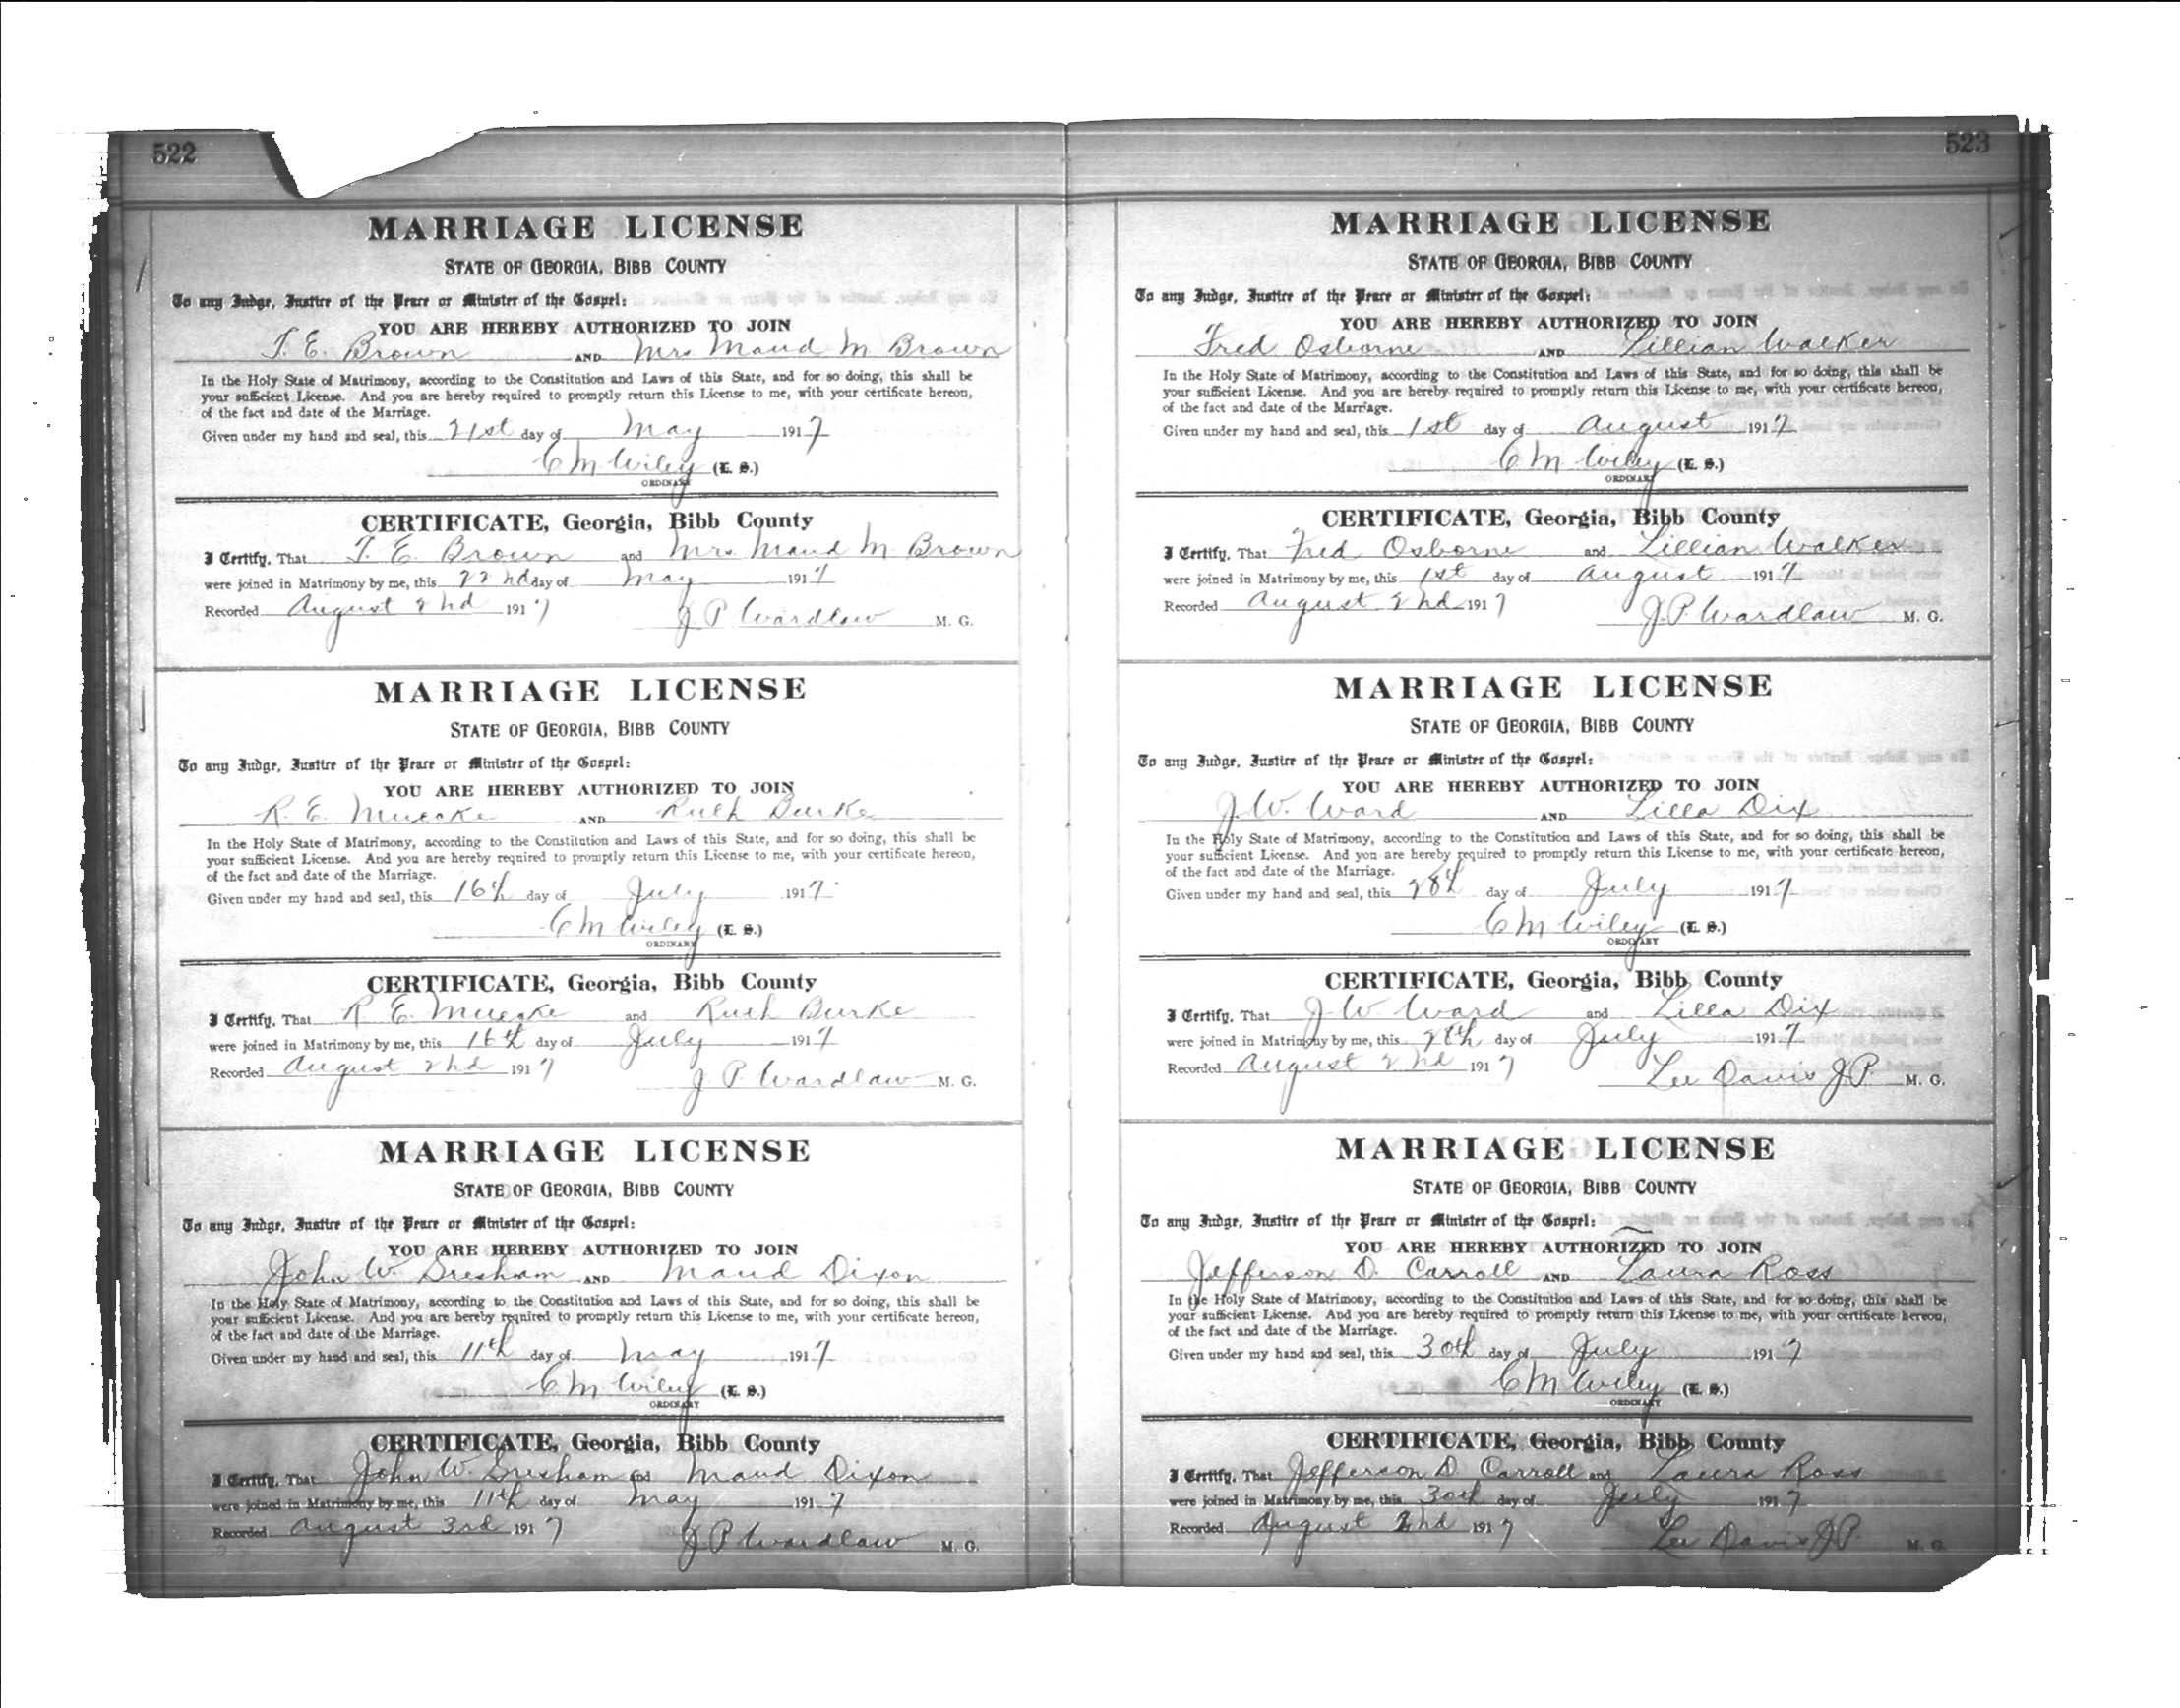 522
MARRIAGE LICENSE
STATE OF GEORGIA, BIBB COUNTY
To any Judge, Justice of the Peace or Minister of the Gospel:
YOU ARE HEREBY AUTHORIZED TO JOIN
T. E. Brown AND Mrs Maud M Brown
In the Holy State of Matrimony, according to the Constitution and Laws of this State, and for so doing, this shall be
your sufficient License. And you are hereby required to promptly return this License to me, with your certificate hereon,
of the fact and date of the Marriage.
Given under my hand and seal, this 21st day of May 1917
C M Wiley (L. S.)
ORDINARY
CERTIFICATE, Georgia, Bibb County
I Certify, That T. E. Brown and Mrs. Maud M Brown
were joined in Matrimony by me, this 22nd day of May 1917
Recorded August 2nd 1917 J P Wardlaw M. G.
MARRIAGE LICENSE
STATE OF GEORGIA, BIBB COUNTY
To any Judge, Justice of the Peace or Minister of the Gospel:
YOU ARE HEREBY AUTHORIZED TO JOIN
R. E. Muecke AND Ruth Burke
In the Holy State of Matrimony, according to the Constitution and Laws of this State, and for so doing, this shall be
your sufficient License. And you are hereby required to promptly return this License to me, with your certificate hereon,
of the fact and date of the Marriage.
Given under my hand and seal, this 16th day of July 1917
C M Wiley (L. S.)
ORDINARY
CERTIFICATE, Georgia, Bibb County
I Certify, That R E. Muecke and Ruth Burke
were joined in Matrimony by me, this 16th day of July 1917
Recorded August 2nd 1917 J P Wardlaw M. G.
MARRIAGE LICENSE
STATE OF GEORGIA, BIBB COUNTY
To any Judge, Justice of the Peace or Minister of the Gospel:
YOU ARE HEREBY AUTHORIZED TO JOIN
John W. Gresham AND Maud Dixon
In the Holy State of Matrimony, according to the Constitution and Laws of this State, and for so doing, this shall be
your sufficient License. And you are hereby required to promptly return this License to me, with your certificate hereon,
of the fact and date of the Marriage.
Given under my hand and seal, this 11th day of May 1917
C M Wiley (L. S.)
ORDINARY
CERTIFICATE, Georgia, Bibb County
I Certify, That John W. Gresham and Maud Dixon
were joined in Matrimony by me, this 11th day of May 1917
Recorded August 3rd 1917 J P Wardlaw M. G.
523
MARRIAGE LICENSE
STATE OF GEORGIA, BIBB COUNTY
To any Judge, Justice of the Peace or Minister of the Gospel:
YOU ARE HEREBY AUTHORIZED TO JOIN
Fred Osborne AND Lillian Walker
In the Holy State of Matrimony, according to the Constitution and Laws of this State, and for so doing, this shall be
your sufficient License. And you are hereby required to promptly return this License to me, with your certificate hereon,
of the fact and date of the Marriage.
Given under my hand and seal, this 1st day of August 1917
C M Wiley (L. S.)
ORDINARY
CERTIFICATE, Georgia, Bibb County
I Certify, That Fred Osborne and Lillian Walker
were joined in Matrimony by me, this 1st day of August 1917
Recorded August 2nd 1917 J. P. Wardlaw M. G.
MARRIAGE LICENSE
STATE OF GEORGIA, BIBB COUNTY
To any Judge, Justice of the Peace or Minister of the Gospel:
YOU ARE HEREBY AUTHORIZED TO JOIN
J. W. Ward AND Lilla Dix
In the Holy State of Matrimony, according to the Constitution and Laws of this State, and for so doing, this shall be
your sufficient License. And you are hereby required to promptly return this License to me, with your certificate hereon,
of the fact and date of the Marriage.
Given under my hand and seal, this 28th day of July 1917
C M Wiley (L. S.)
ORDINARY
CERTIFICATE, Georgia, Bibb County
I Certify, That J W Ward and Lilla Dix
were joined in Matrimony by me, this 28th day of July 1917
Recorded August 2nd 1917 Lee Davis J. P. M. G.
MARRIAGE LICENSE
STATE OF GEORGIA, BIBB COUNTY
To any Judge, Justice of the Peace or Minister of the Gospel:
YOU ARE HEREBY AUTHORIZED TO JOIN
Jefferson D. Carroll AND Laura Ross
In the Holy State of Matrimony, according to the Constitution and Laws of this State, and for so doing, this shall be
your sufficient License. And you are hereby required to promptly return this License to me, with your certificate hereon,
of the fact and date of the Marriage.
Given under my hand and seal, this 30th day of July 1917
C M Wiley (L. S.)
ORDINARY
CERTIFICATE, Georgia, Bibb County
I Certify, That Jefferson D. Carroll and Laura Ross
were joined in Matrimony by me, this 30th day of July 1917
Recorded August 2nd 1917 Lee Davis J P. M. G.